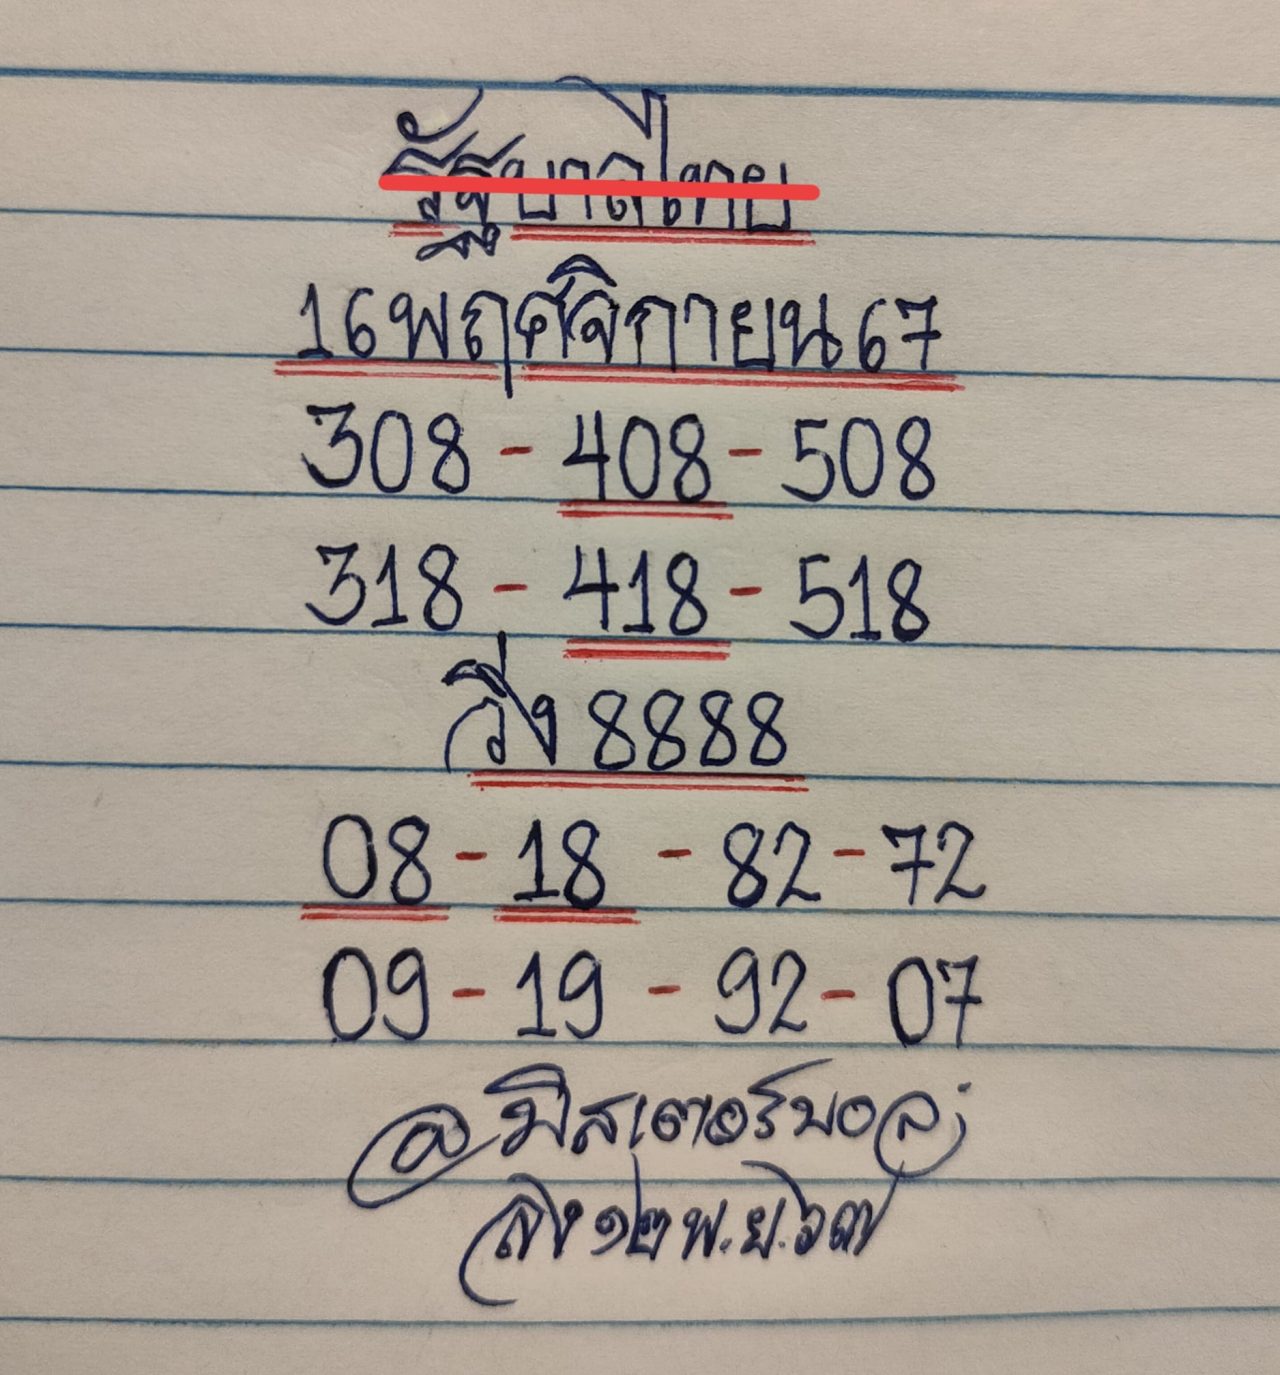 รัฐบาลไทย
16 พฤศจิกายน 67
308 - 408 - 508
318 - 418 - 518
วิ่ง 8888
08 - 18 - 82 - 72
09 - 19 - 92 - 07
@มิสเตอร์บอล
ลง ๑๒ พ.ย. ๖๗